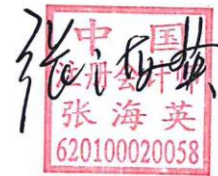 中国
注册会计师
张海英
620100020058
张海英